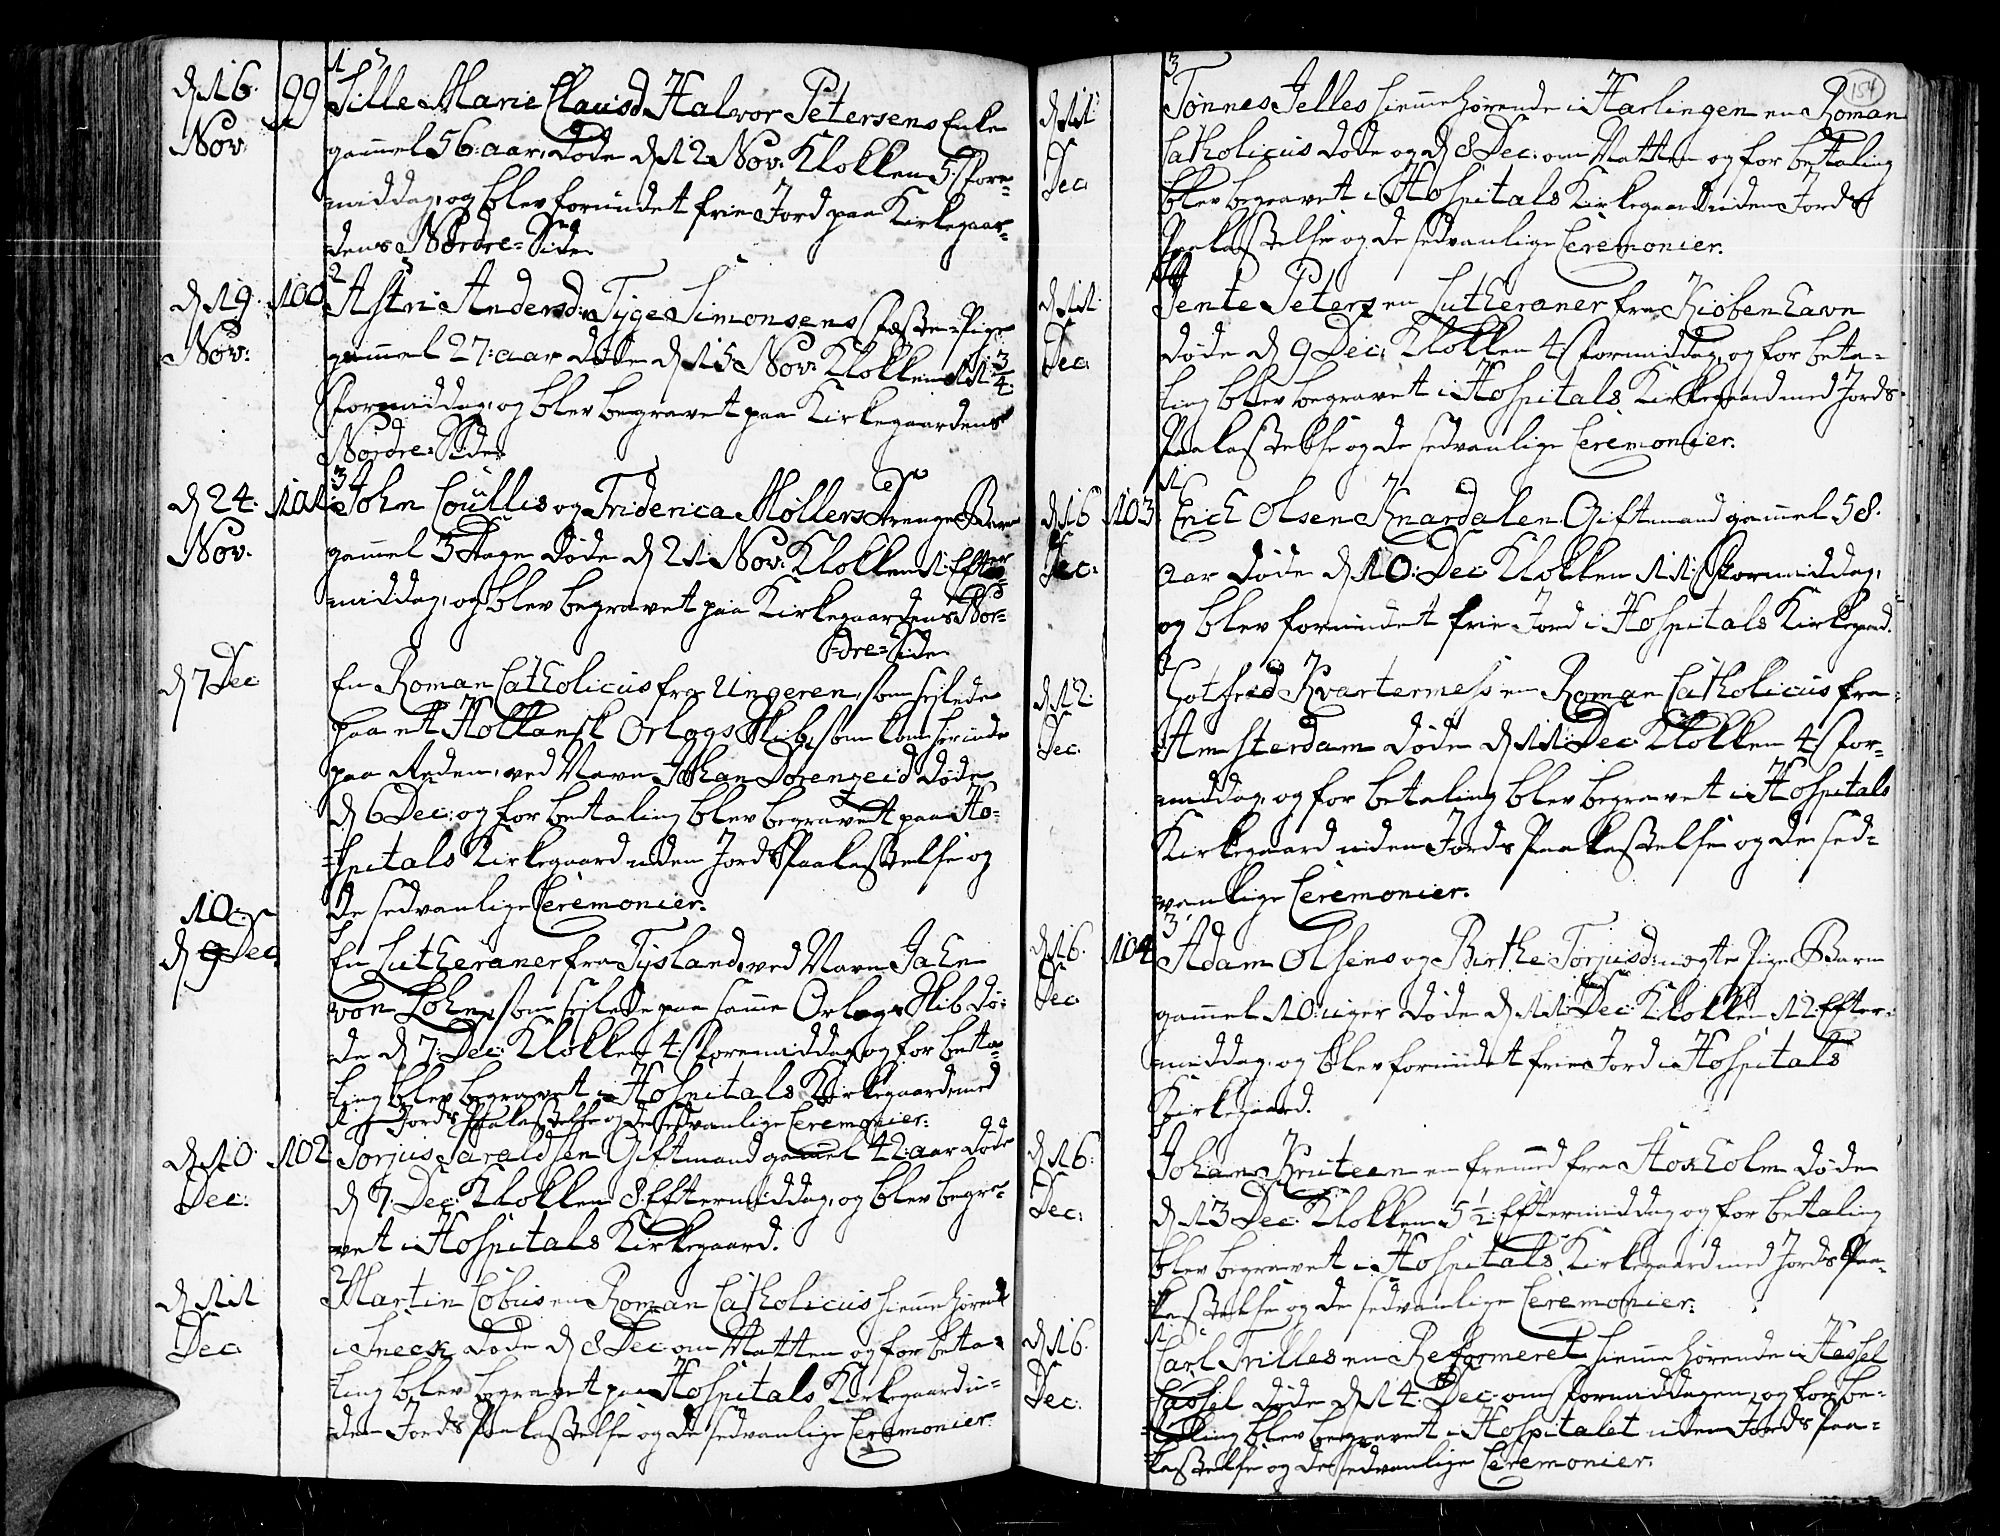 d. 16. Nov: 99
1
Sille Marie Clausd. Halvor Petersens Enke
gammel 56: aar, døde d. 12 Nov: Klokken 5 Fore-
middag, og blev forundet frie Jord paa Kirkegaar-
dens Nordre Side.
d. 19. Nov: 100
2
Astri Andersd. Tyge Simonsens Fæste Pige
gammel 27: aar døde d. 15 Nov: Klokken 11 3/4
Formiddag, og blev begravet paa Kirkegaardens
Nordre Side.
d. 24. Nov. 101
3
John Coullis og Friderica Møllers Drenge Barn
gammel 3 Dage døde d. 21 Nov: Klokken 1. Efter
middag, og blev begravet paa Kirkegaardens Nor-
dre Side
d 7 Dec
En Roman Catholicus fra Ungeren, som seilede
paa et Hollansk Orlogs Skib, som kom her ind
paa Reden, ved Navn Johan Dorenzeid døde
d. 6 Dec: og for betaling blev begravet paa Ho-
spitals Kirkegaard uden Jords Paakastelse og
de sedvanlige Ceremonier.
10
d 9 Dec
En Lutheraner fra Tysland, ved Navn Jahn
von Lohn, som seilede paa samme Orlogs Skib dø-
de d. 7: Dec: Klokken 4: Foremiddag og for beta-
ling blev begravet i Hospitals Kirkegaard med
Jords Paakastelse og de sedvanlige Ceremonier.
d. 10. Dec: 102
1
Torjus Taraldsen Giftmand gammel 42: aar døde
d. 7. Dec: Klokken 8. Eftermiddag, og blev begra-
vet i Hospitals Kirkegaard.
d. 11 Dec
2
Martin Cobus en Roman Catholicus hiemme hørende
i Sneek døde d 8 Dec om Natten og for beta-
ling blev begravet paa Hospitals Kirkegaard u-
den Jords Paakastelse og de sedvanlige Ceremonier.
154
d. 11. Dec.
3
Tønnes Jelles hiemme hørende i Harlingen en Roman
Catholicus døde og d 8 Dec: om Natten og for betaling
blev begravet i Hospitals Kirkegaard uden Jords
Paakastelse og de sedvanlige Ceremonier.
d. 11. Dec.
4
Sente Petersen Lutheraner fra Kiøbenhavn
døde d 9 Dec: Klokken 4 Formiddag, og for beta-
ling blev begravet i Hospitals Kirkegaard med Jords
Paakastelse og de sedvanlige Ceremonier.
d. 16 Dec: 103
1
Erich Olsen Knardalen Giftmand gammel 58.
aar døde d. 10: Dec Klokken 11: Formiddag,
og blev forundet frie Jord i Hospitals Kirkegaard.
d. 12. Dec.
2
Gotfred Kvartermess en Roman Catholicus fra
Amsterdam døde d. 11: Dec: Klokken 4: For-
middag, og for betaling blev begravet i Hospitals
Kirkegaard uden Jords Paakastelse og de sed-
vanlige Ceremonier.
d. 16. Dec 104
3
Adam Olsens og Birthe Torjusd: uegte Pige Barn
gammel 10: uger døde d. 11: Dec: Klokken 12: Efter-
middag, og blev forundet frie Jord i Hospitals
Kirkegaard.
d. 16: Dec:
Johan Kruteen en fremmed fra Stokholm døde
d. 13 Dec: Klokken 5 1/2: Eftermiddag og for betaling
blev begravet i Hospitals Kirkegaard med Jords Paa-
kastelse og de sedvanlige Ceremonier.
d. 16. Dec:
Carl Trilles en Reformeret hiemme hørende i Hessel
Cassel døde d. 14 Dec: om Formiddagen, og for be-
taling blev begravet i Hospitalet uden Jords Paa-
kastelse og de sedvanlige Ceremonier.